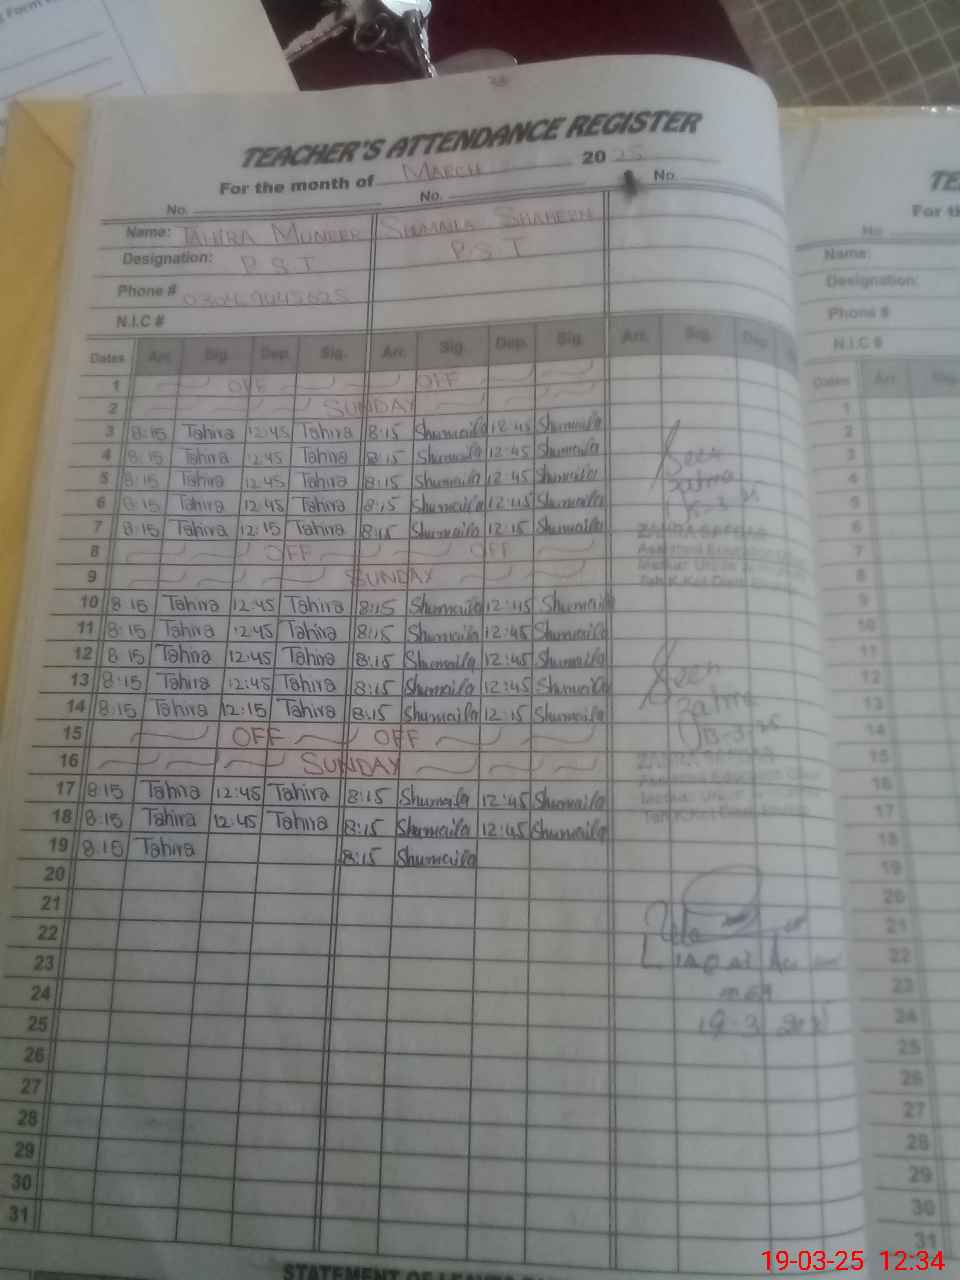 TEACHER'S ATTENDANCE REGISTER
For the month of MARCH 2025
No. No. No.
Name: TAHIRA MUNEER SHUMAILA SHAHEEN
Designation: P.S.T P.S.T
Phone #
N.I.C #
Dates Arr. Sig. Dep. Sig. Arr. Sig. Dep. Sig. Arr. Sig. Dep. S
1 OFF OFF
2 SUNDAY
3 8:15 Tahira 12:45 Tahira 8:15 Shumaila 12:45 Shumaila
4 8:15 Tahira 12:45 Tahira 8:15 Shumaila 12:45 Shumaila
5 8:15 Tahira 12:45 Tahira 8:15 Shumaila 12:45 Shumaila
6 8:15 Tahira 12:45 Tahira 8:15 Shumaila 12:45 Shumaila
7 8:15 Tahira 12:15 Tahira 8:15 Shumaila 12:15 Shumaila
8 OFF OFF
9 SUNDAY
10 8:15 Tahira 12:45 Tahira 8:15 Shumaila 12:45 Shumaila
11 8:15 Tahira 12:45 Tahira 8:15 Shumaila 12:45 Shumaila
12 8:15 Tahira 12:45 Tahira 8:15 Shumaila 12:45 Shumaila
13 8:15 Tahira 12:45 Tahira 8:15 Shumaila 12:45 Shumaila
14 8:15 Tahira 12:15 Tahira 8:15 Shumaila 12:15 Shumaila
15 OFF OFF
16 SUNDAY
17 8:15 Tahira 12:45 Tahira 8:15 Shumaila 12:45 Shumaila
18 8:15 Tahira 12:45 Tahira 8:15 Shumaila 12:45 Shumaila
19 8:15 Tahira 8:15 Shumaila
20
21
22
23
24
25
26
27
28
29
30
31
Seen
Seen
13-3-25
19-3
TE
For th
No
Name:
Designation:
Phone #
N.I.C #
Dates Arr. Sig.
1
2
3
4
5
6
7
8
9
10
11
12
13
14
15
16
17
18
19
20
21
22
23
24
25
26
27
28
29
30
31
19-03-25 12:34